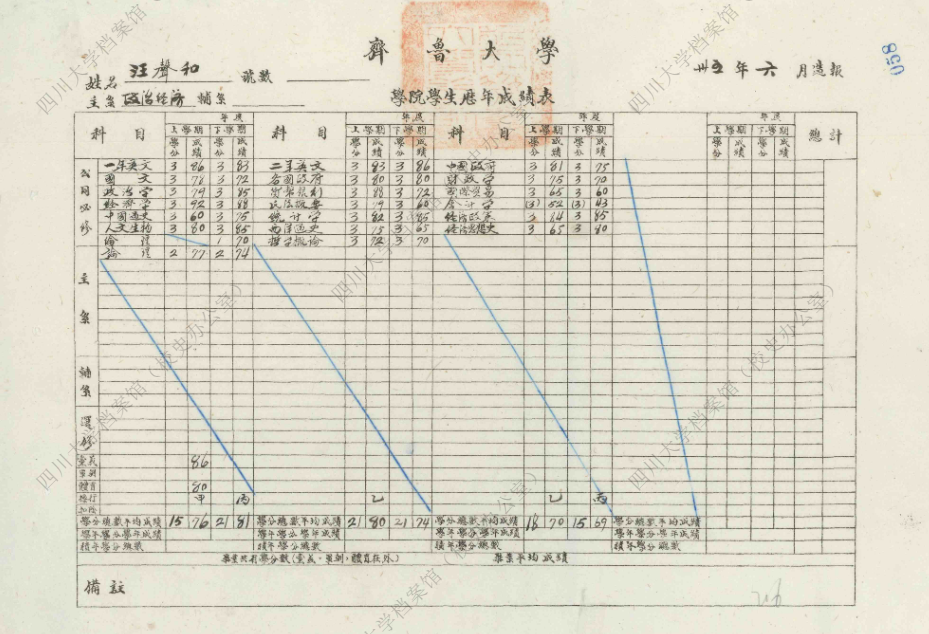 齊魯大學
姓名 汪聲和 號數
卅五年六月造報
058
主系 政治經濟 輔系
學院學生歷年成績表
科目 年度 科目 年度 科目 年度 年度 總計
上學期 下學期 上學期 下學期 上學期 下學期 上學期 下學期
學分 成績 學分 成績 學分 成績 學分 成績 學分 成績 學分 成績 學分 成績 學分 成績
公同必修
一年英文 3 86 3 83 二年英文 3 83 3 86 中國政府 3 81 3 75
國文 3 78 3 72 各國政府 3 80 3 80 財政學 3 75 3 70
政治學 3 79 3 85 3 88 3 72 國際貿易 3 65 3 60
經濟學 3 92 3 88 民法概要 3 79 3 60 會計學 (3) 52 (3) 43
中國通史 3 60 3 75 統計學 3 82 3 85 經濟政策 3 84 3 85
人文生物 3 80 3 85 西洋通史 3 75 3 65 經濟思想史 3 65 3 80
倫理 1 70 哲學概論 3 72 3 70
論理 2 77 2 74
主系
輔系
選修
黨義 86
軍訓
體育 80
操行 甲 丙 乙 乙 丙
學分總數平均成績 15 76 21 81 學分總數平均成績 21 80 21 74 學分總數平均成績 18 70 15 69 學分總數平均成績
學年學分學年成績 學年學分學年成績 學年學分學年成績 學年學分學年成績
積年學分總數 積年學分總數 積年學分總數 積年學分總數
畢業共有學分數(黨義、軍訓、體育在外) 畢業平均成績
備註
四川大学档案馆（校史办公室）